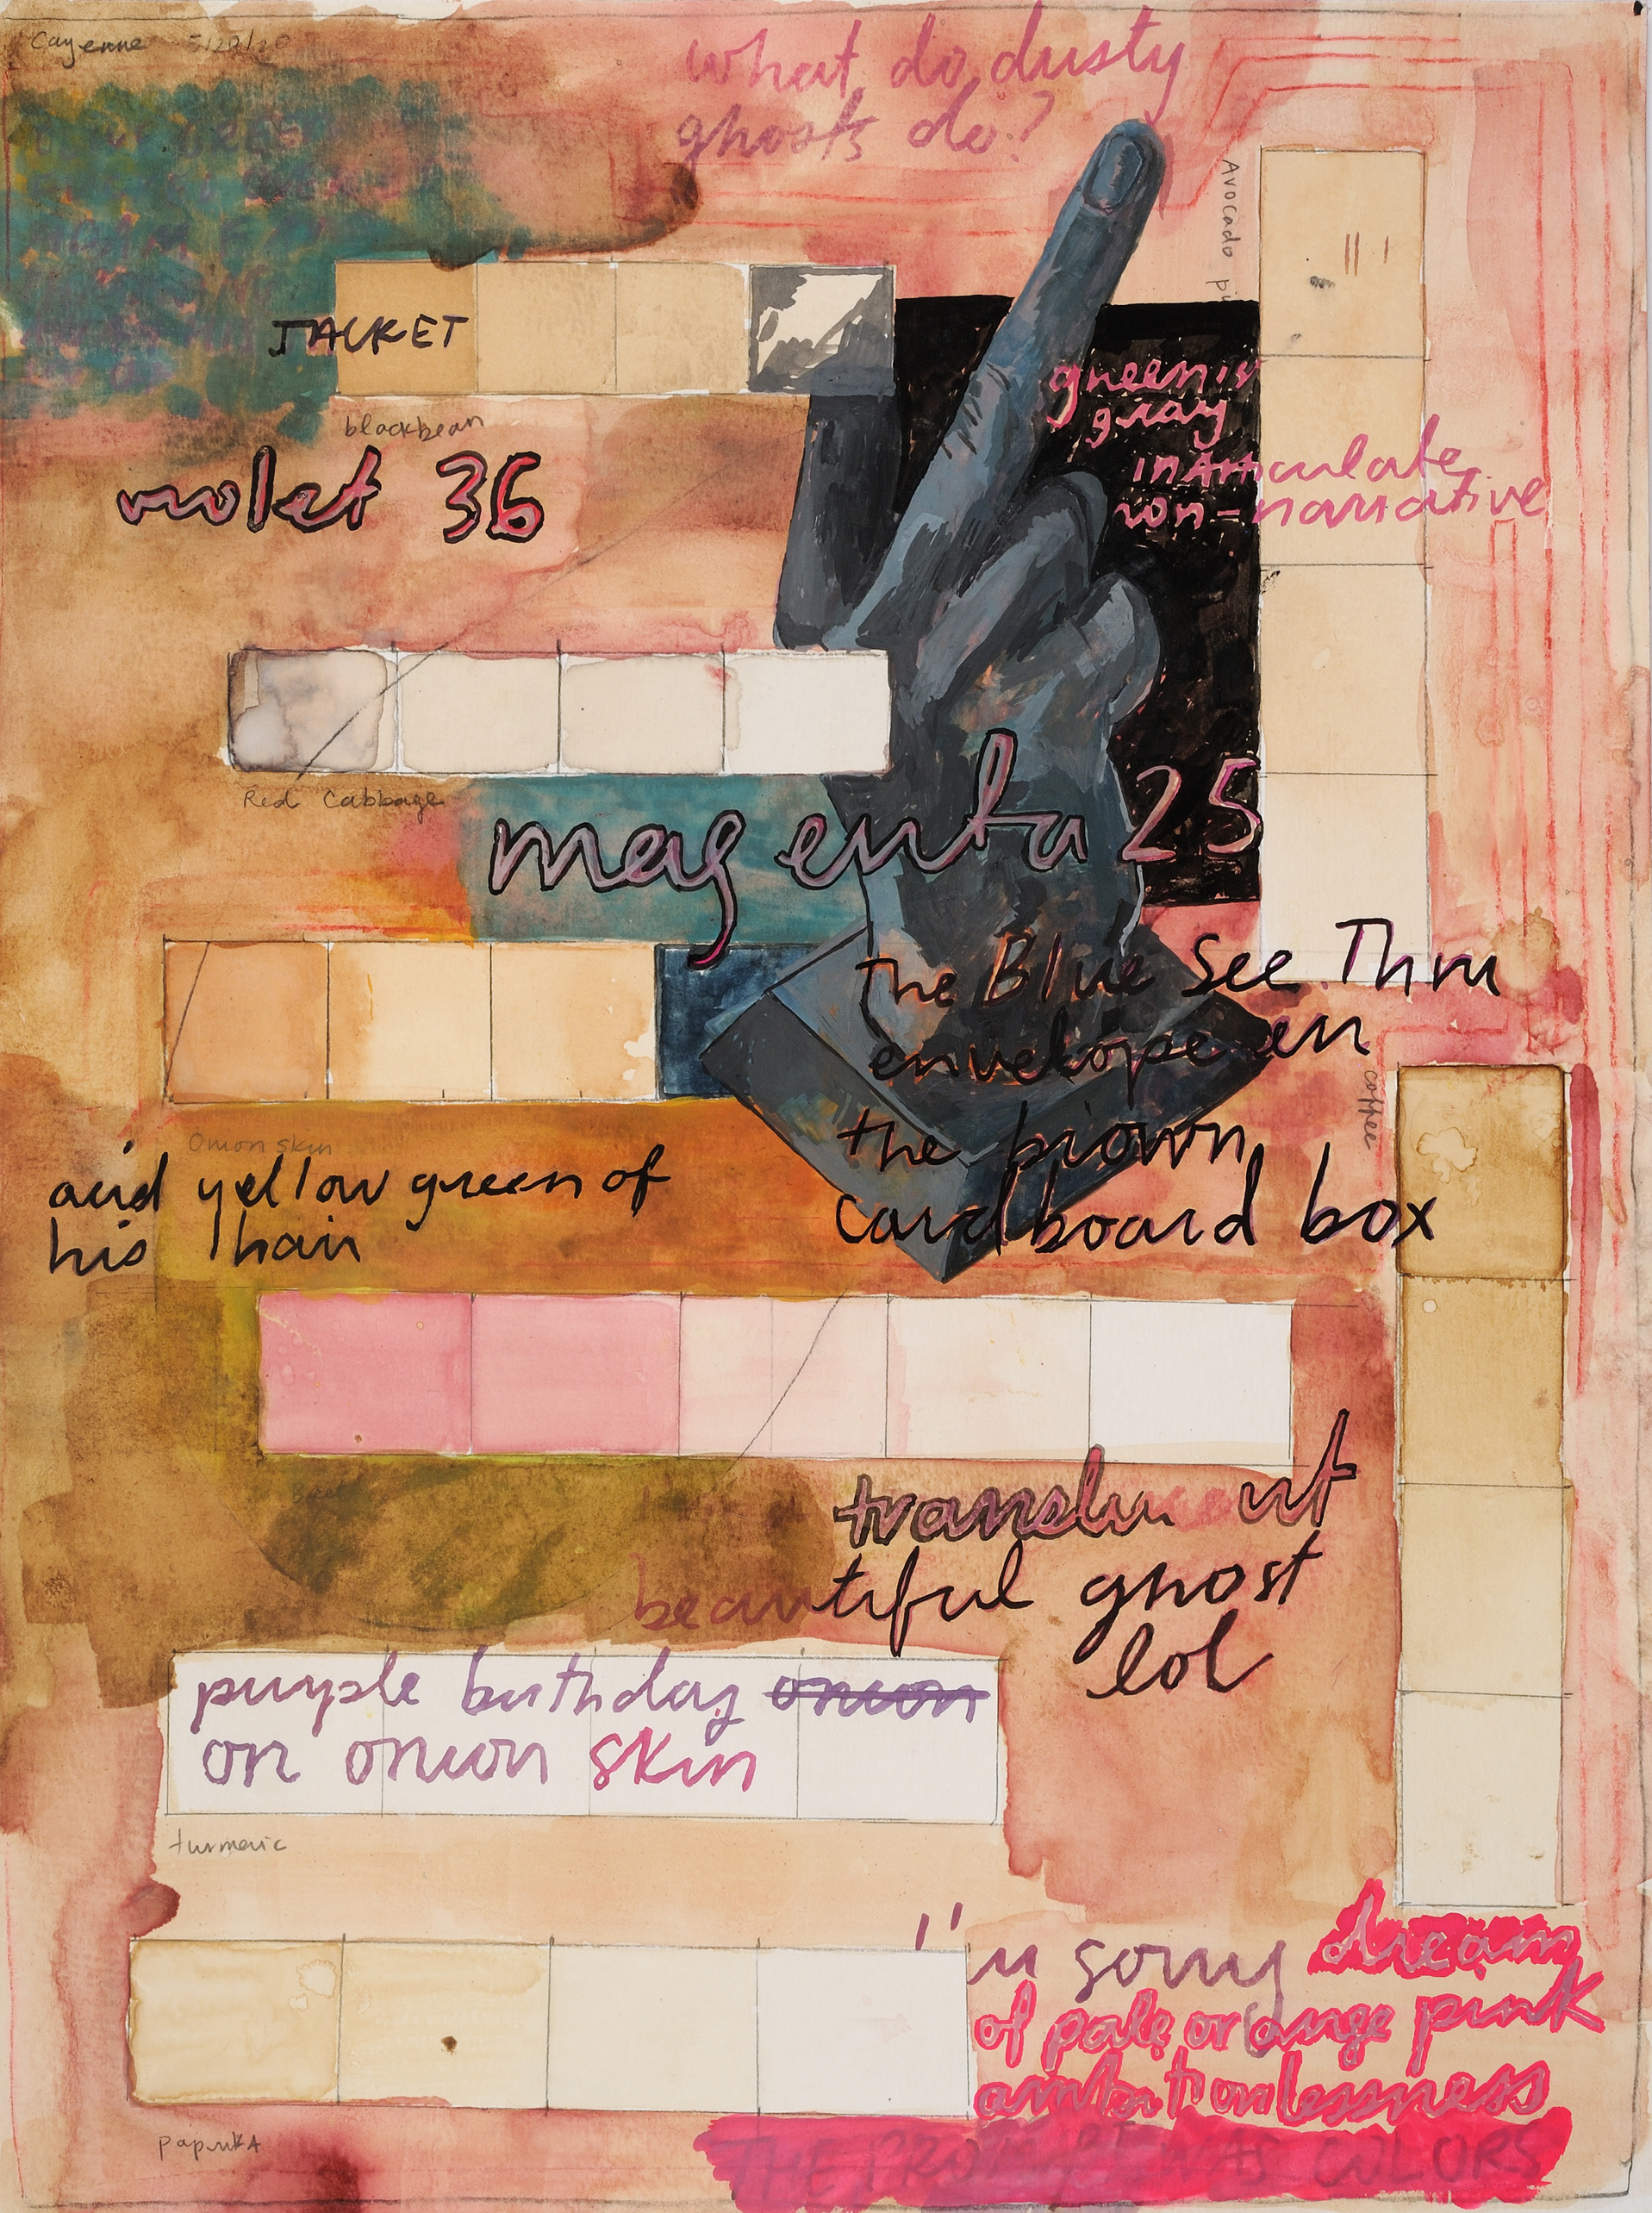 Cayenne 5/20/20
what do dusty
ghosts do?
Avocado pi
JACKET
blackbean
violet 36
green is
gray
inarticulate
non-narrative
Red Cabbage
magenta 25
The Blue See Thru
envelope an
the brown
cardboard box
coffee
Onion skin
acid yellow green of
his hair
Beet
translucent
beautiful ghost
lol
purple birthday onion
on onion skin
turmeric
I'm sorry dream
of pale orange pink
ambitionlessness
THE PROMPT WAS COLORS
paprikA